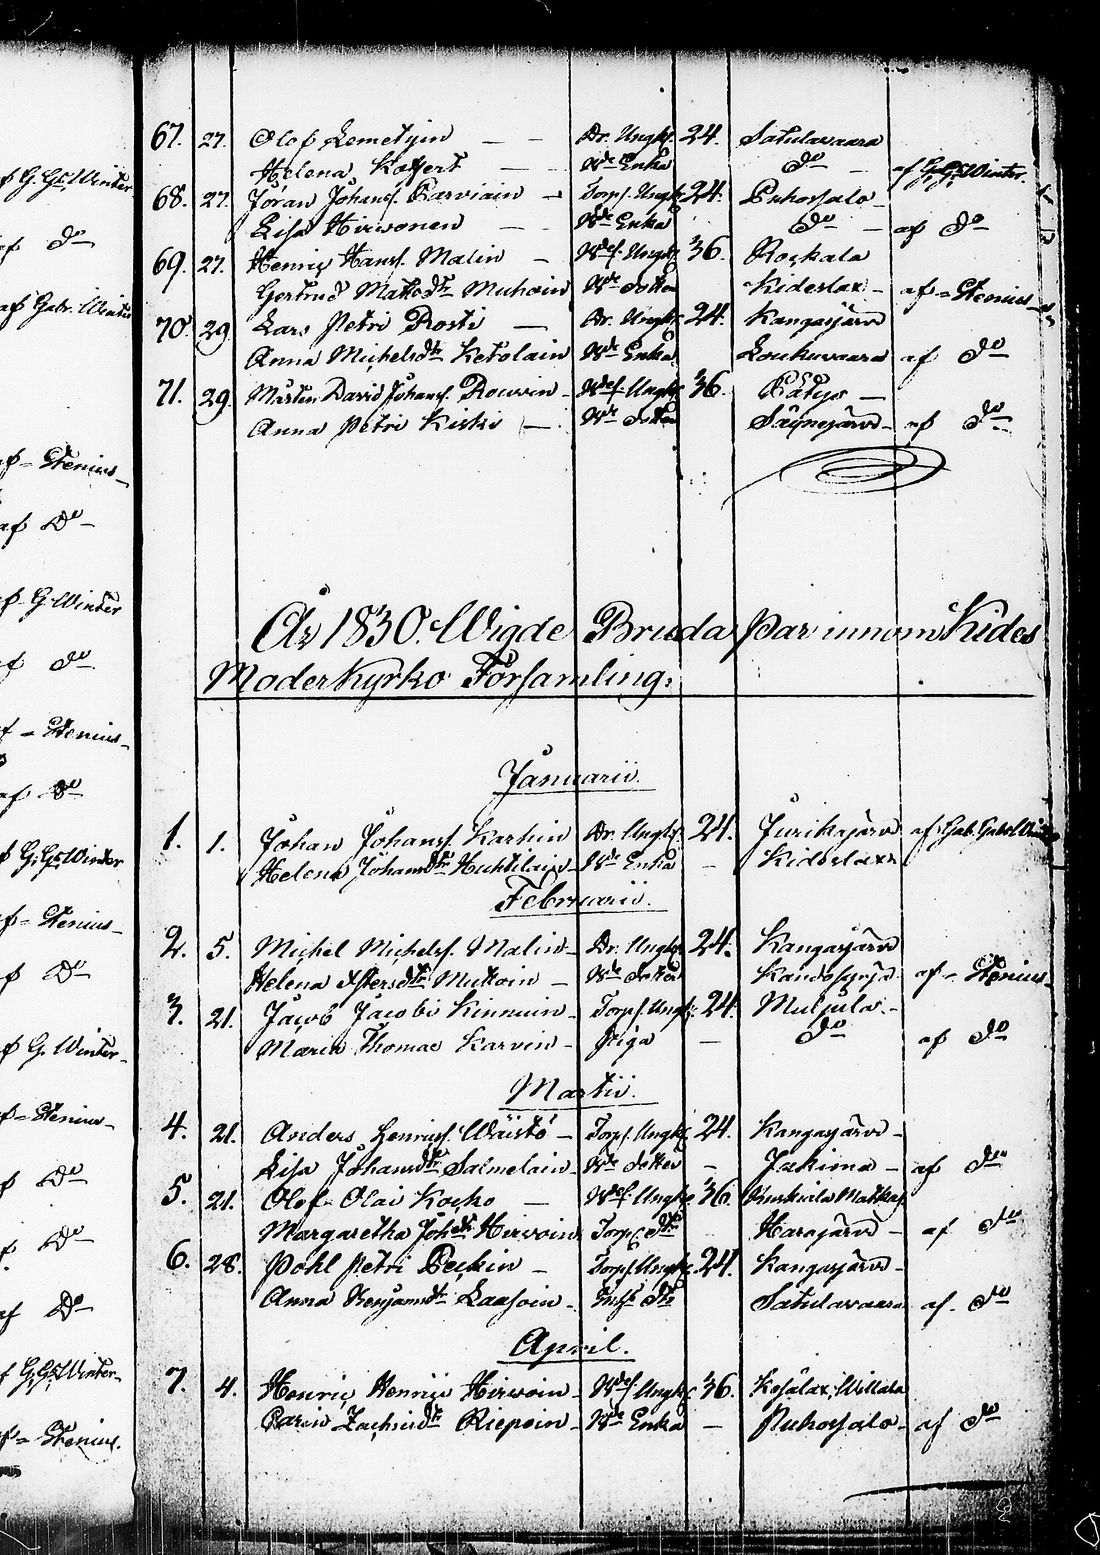 af G. Gs Winter
af Do
af Gabr. Winter
af - Stenius -
af Do -
af G. Winter
af Do
af - Stenius -
af Do
af G. Gs Winter
af - Stenius -
af Do -
af G. Winter -
af - Stenius -
af Do
af Do -
af Do
af G. Gs Winter -
af - Stenius.
67. 27. Olof Lemetyin — — Dr. Ungk. 24. Satulavaara
Helena Kokert — Wde Enka Do — af G. Gs Winter.
68. 27. Jöran Johansf. Parviain — Torpf. Ungk 24. Puhosfalo -
Lisa Hirwonen — Wde Enka Do — af Do
69. 27. Henric Hansf. Malin — Wdef. Ungk 36. Rockala
Gertrud Matsdtr Muhoin Wde dotter Kideslax - af - Stenius -
70. 29. Lars Petri Rosti — Dr. Ungk. 24. Kangasjärvi
Anna Michelsdtr Ketolain Wde Enka Loukuvaara af Do
71. 29. Mårten David Johansf. Rouvin - Wdef. Ungk 36. Pätys —
Anna Petri Kiski — Wde dotter Säynejärvi - af Do
År 1830. Wigde Bruda Par innom Kides
Moderkyrko Församling.
Januarii.
1. 1. Johan Johansf. Karhin Dr. Ungk. 24. Juurikajärvi af Gab. Gabrs Winter
Helena Johansdtr Huhtilain Wde Enka — Kideslax
Februarii.
2. 5. Michel Michelsf. Malin - Dr. Ungk. 24. Kangasjärvi
Helena Istersdtr Mutoin — Wde dotter af - Stenius -
3. 21. Jacob Jacobs Kinnuin - Torpf. Ungk. 24. Muljula -
Maria Thomae Karvin - Piga — Do af Do
Martii.
4. 21. Anders Henricsf. Wäistö — Torpf. Ungk 24. Kangasjärvi -
Lisa Johansdtr Salmelain - Wde dotter — Jakima — af Do
5. 21. Olof Olai Kocko — Wdef. Ungk 36.
Margaretha Johdtr Hirvoin Torp. dtr Harajärvi — af Do
6. 28. Pohl Petri Peckin — Torpf. Ungk. 24. Kangasjärvi -
Anna Benjamsdtr Laasoin - Inhs dtr Satulavaara af. Do
April.
7. 4. Henric Henrics Hirvoin - Wdef. Ungk. 36. Kesälax, Willala
Carin Zachrisdtr Riepoin - Wde Enka — Puhosfalo - af Do